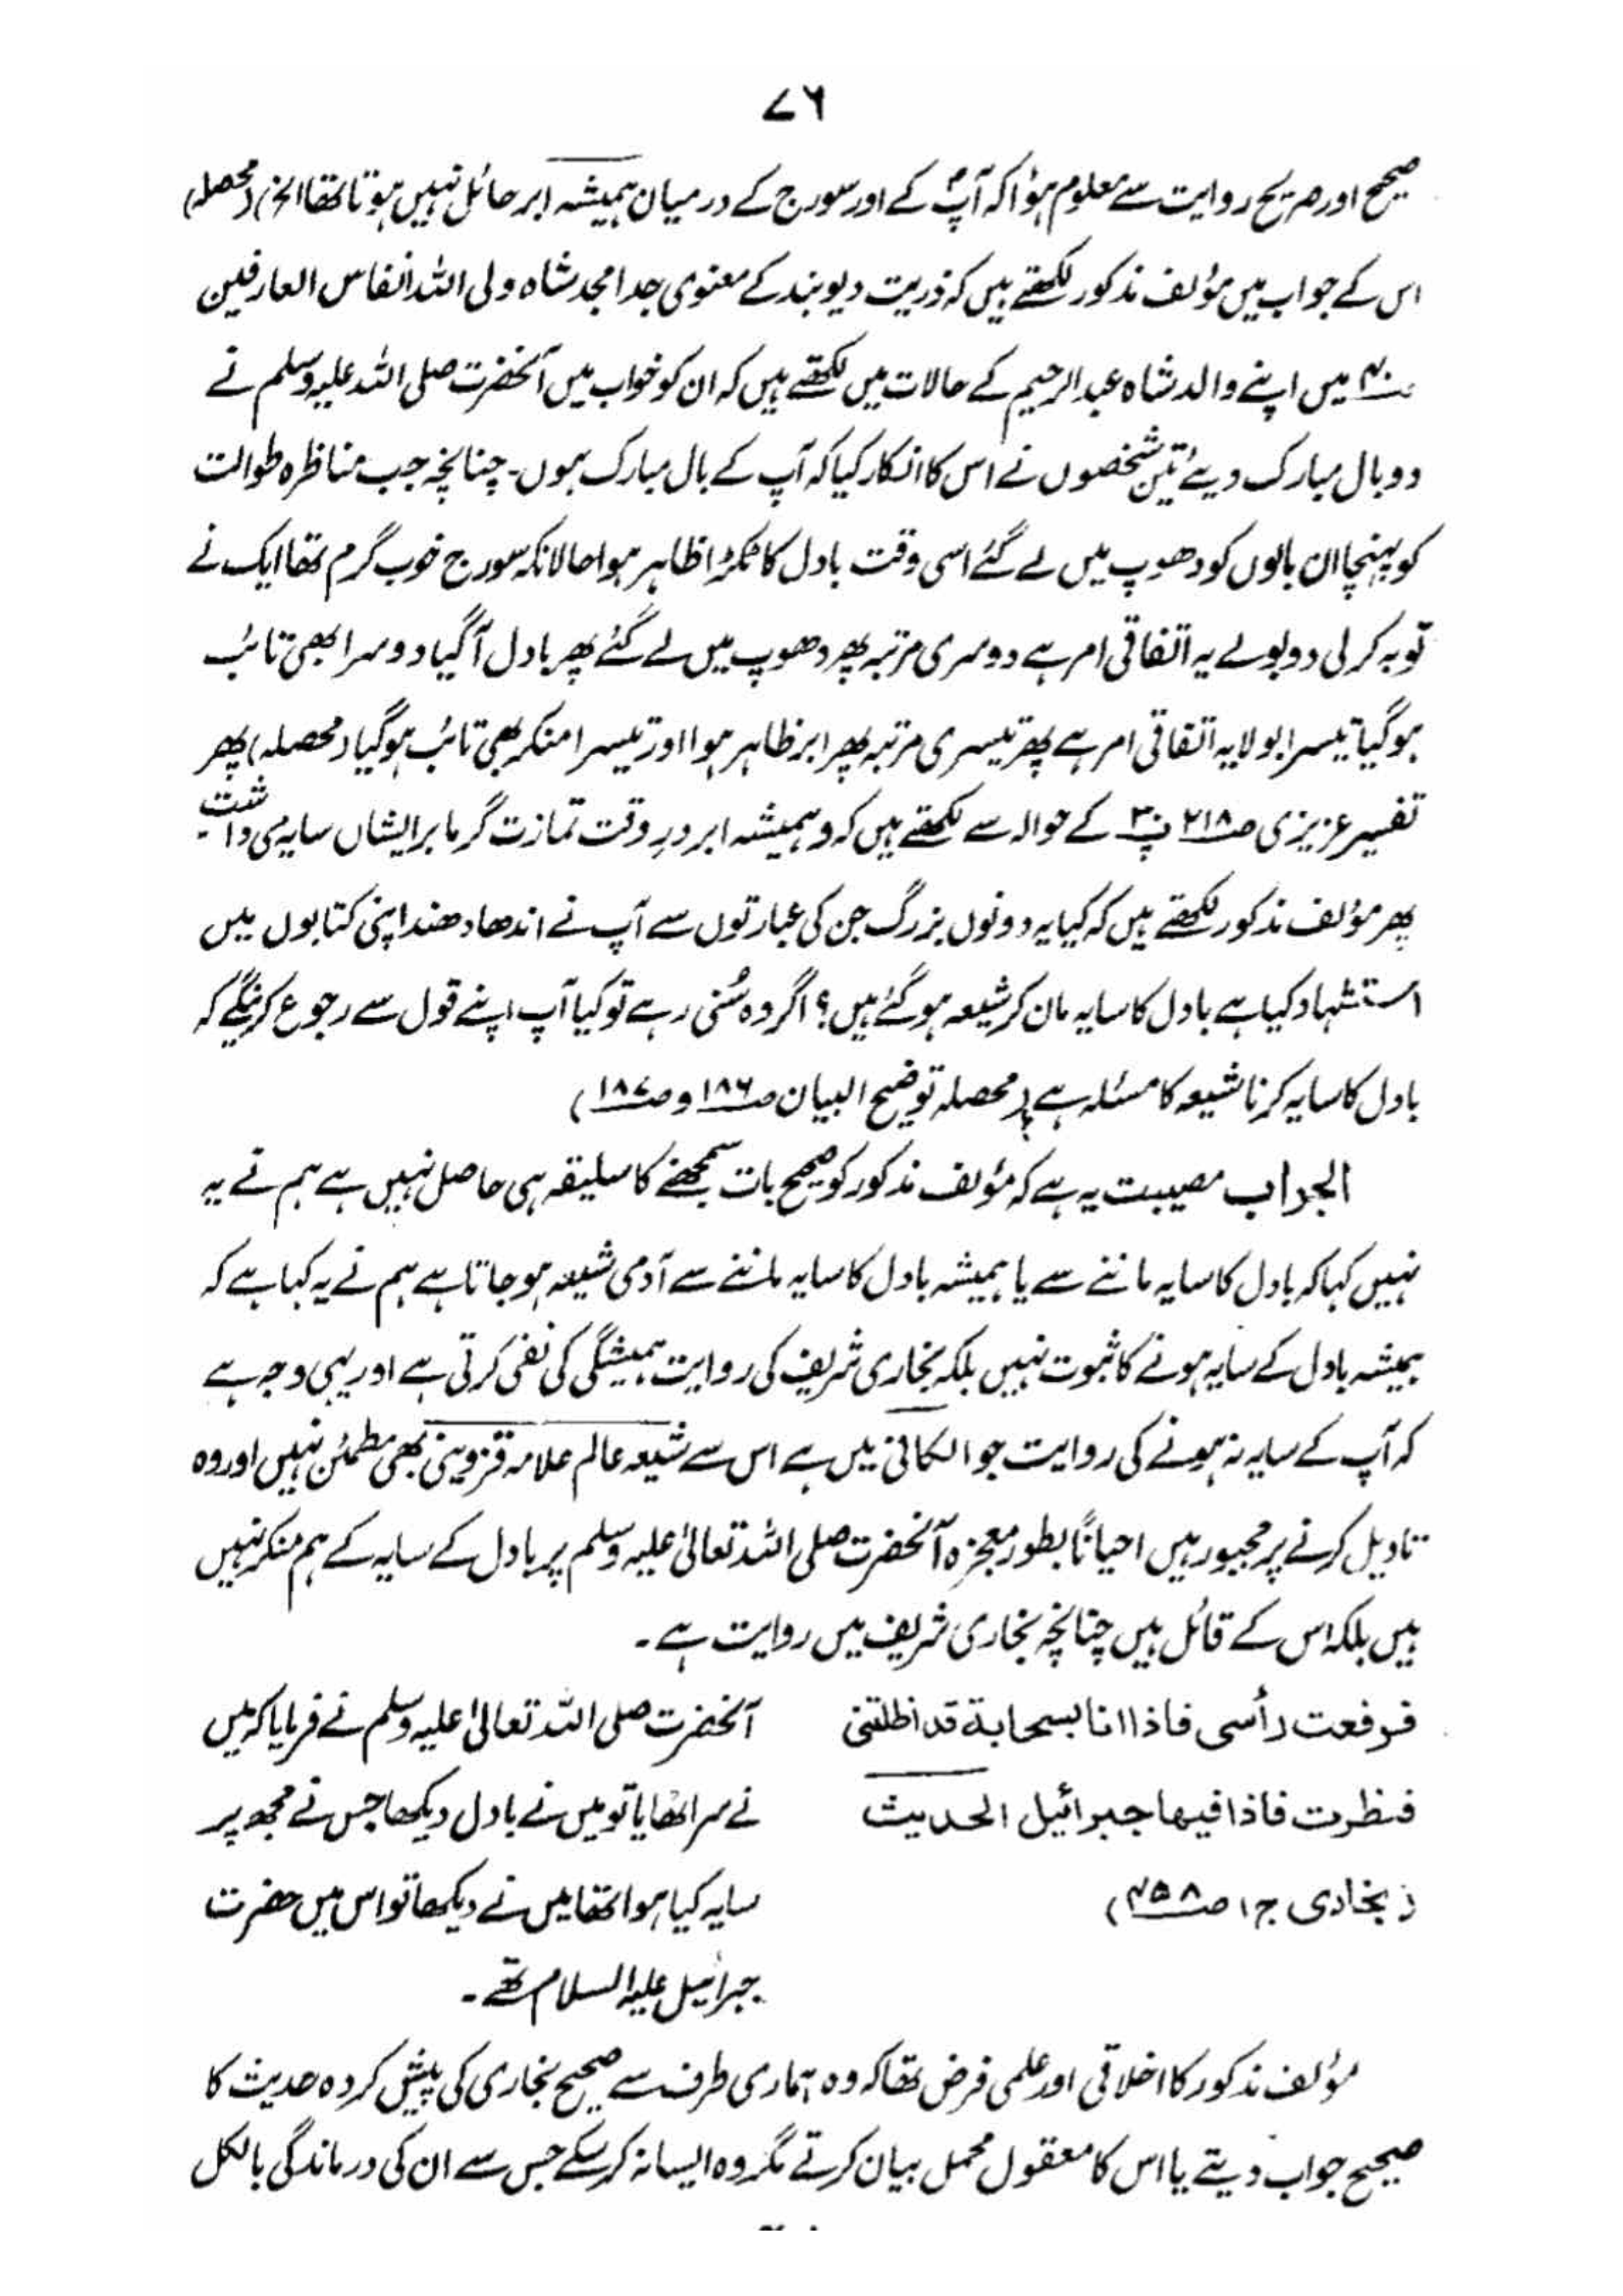 ۷۶
صحیح اور صریح روایت سے معلوم ہؤا کہ آپؐ کے اور سورج کے درمیان ہمیشہ ابر حائل نہیں ہوتا تھا الخ (محصلہ)
اس کے جواب میں مؤلف مذکور لکھتے ہیں کہ ذریت دیوبند کے معنوی جد امجد شاہ ولی اللہ انفاس العارفین
ص۴۰ میں اپنے والد شاہ عبدالرحیم کے حالات میں لکھتے ہیں کہ ان کو خواب میں آنحضرت صلی اللہ علیہ وسلم نے
دو بال مبارک دیئے تین شخصوں نے اس کا انکار کیا کہ آپ کے بال مبارک ہوں۔ چنانچہ جب مناظرہ طوالت
کو پہنچا ان بالوں کو دھوپ میں لے گئے اسی وقت بادل کا ٹکڑا ظاہر ہوا حالانکہ سورج خوب گرم تھا ایک نے
توبہ کر لی دو بولے یہ اتفاقی امر ہے دوسری مرتبہ پھر دھوپ میں لے گئے پھر بادل آگیا دوسرا بھی تائب
ہوگیا تیسرا بولا یہ اتفاقی امر ہے پھر تیسری مرتبہ پھر ابر ظاہر ہوا اور تیسرا منکر بھی تائب ہوگیا (محصلہ) پھر
تفسیر عزیزی ص۲۱۸ پ۳۰ کے حوالہ سے لکھتے ہیں کہ وہمیشہ ابر در وقت تمازت گرما بر ایشاں سایہ می داشت۔
پھر مؤلف مذکور لکھتے ہیں کہ کیا یہ دونوں بزرگ جن کی عبارتوں سے آپ نے اندھا دھند اپنی کتابوں میں
استشہاد کیا ہے بادل کا سایہ مان کر شیعہ ہوگئے ہیں؟ اگر وہ سُنی رہے تو کیا آپ اپنے قول سے رجوع کرینگے کہ
بادل کا سایہ کرنا شیعہ کا مسئلہ ہے (محصلہ توضیح البیان ص۱۸۶ و ص۱۸۷)
الجواب مصیبت یہ ہے کہ مؤلف مذکور کو صحیح بات سمجھنے کا سلیقہ ہی حاصل نہیں ہے ہم نے یہ
نہیں کہا کہ بادل کا سایہ ماننے سے یا ہمیشہ بادل کا سایہ ماننے سے آدمی شیعہ ہو جاتا ہے ہم نے یہ کہا ہے کہ
ہمیشہ بادل کے سایہ ہونے کا ثبوت نہیں بلکہ بخاری شریف کی روایت ہمیشگی کی نفی کرتی ہے اور یہی وجہ ہے
کہ آپ کے سایہ نہ ہونے کی روایت جو الکافی میں ہے اس سے شیعہ عالم علامہ قزوینی بھی مطمئن نہیں اور وہ
تاویل کرنے پر مجبور ہیں احیاناً بطور معجزہ آنحضرت صلی اللہ تعالیٰ علیہ وسلم پر بادل کے سایہ کے ہم منکر نہیں
ہیں بلکہ اس کے قائل ہیں چنانچہ بخاری شریف میں روایت ہے۔
فرفعت رأسی فاذا انا بسحابة قد اظلتنی
فنظرت فاذا فیها جبرائیل الحدیث
(بخاری ج۱ ص۴۵۸)
آنحضرت صلی اللہ تعالیٰ علیہ وسلم نے فرمایا کہ میں
نے سر اٹھایا تو میں نے بادل دیکھا جس نے مجھ پر
سایہ کیا ہوا تھا میں نے دیکھا تو اس میں حضرت
جبرائیل علیہ السلام تھے۔
مؤلف مذکور کا اخلاقی اور علمی فرض تھا کہ وہ ہماری طرف سے صحیح بخاری کی پیش کردہ حدیث کا
صحیح جواب دیتے یا اس کا معقول محمل بیان کرتے مگر وہ ایسا نہ کر سکے جس سے ان کی درماندگی بالکل